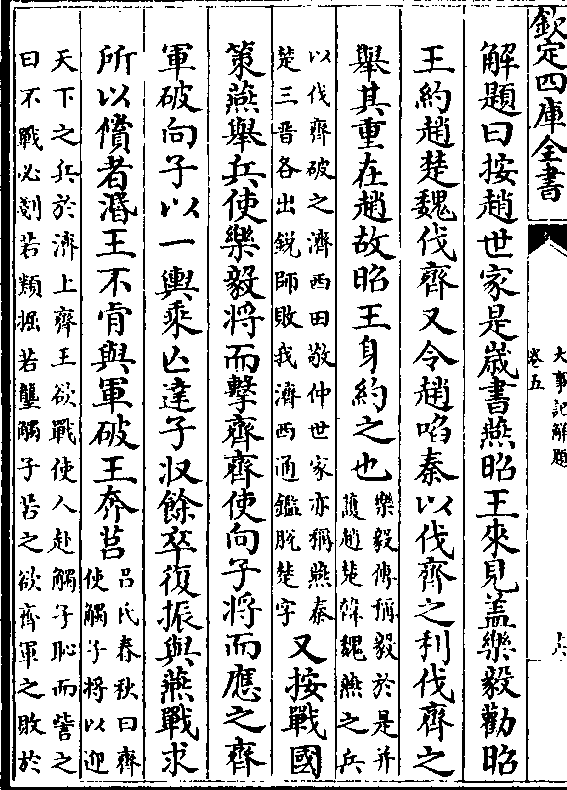 欽定四庫全書
大事記解題
卷五
解題曰按趙世家是歲書燕昭王來見蓋樂毅勸昭
王約趙楚魏伐齊又令趙啗秦以伐齊之利伐齊之
舉其重在趙故昭王身約之也
樂毅傳稱毅於是并
護趙楚韓魏燕之兵
以伐齊破之濟西田敬仲世家亦稱燕秦
楚三晋各出鋭師敗我濟西通鑑脱楚字
又按戰國
策燕舉兵使樂毅将而擊齊齊使向子将而應之齊
軍破向子以一輿乗亡達子收餘卒復振與燕戰求
所以償者湣王不肯與軍破王奔莒
吕氏春秋曰齊
使觸子将以迎
天下之兵於濟上齊王欲戰使人赴觸子恥而訾之
曰不戰必剗若類掘若壟觸子苦之欲齊軍之敗於